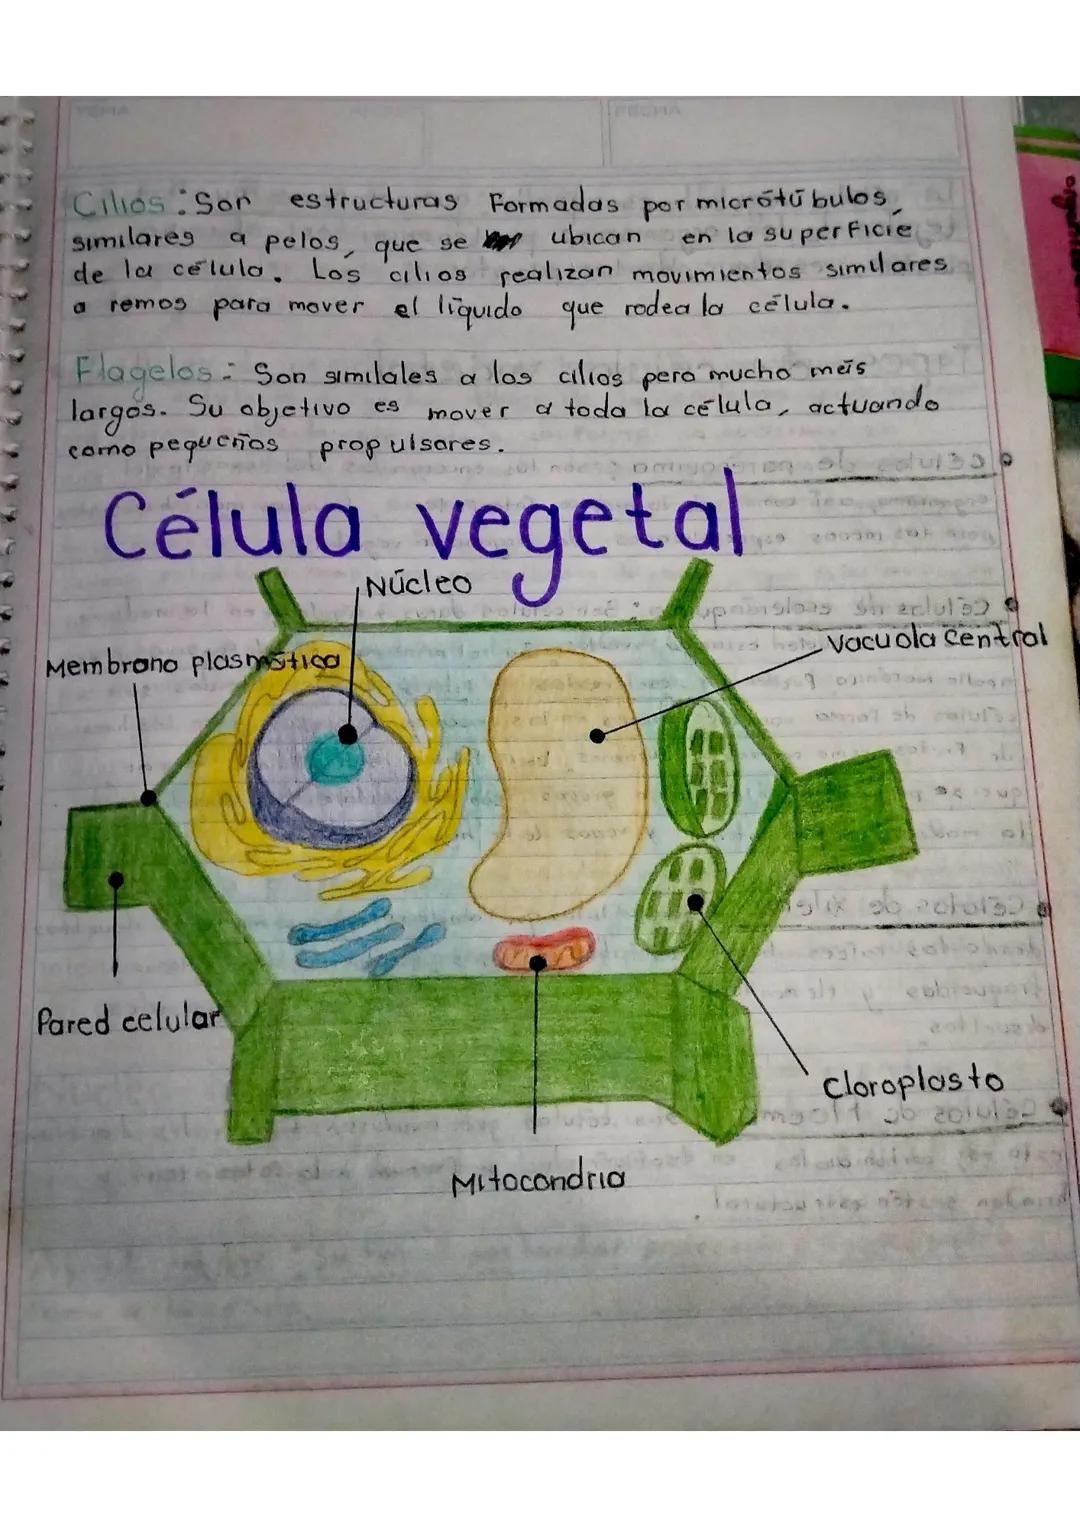 TEMA
FECHA
Cilios: Son estructuras Formadas por microtúbulos,
similares a pelos, que se ubican en la superficie
de la célula. Los cilios realizan movimientos similares
a remos para mover el líquido que rodea la célula.
Flagelos: Son similales a los cilios pero mucho más
largos. Su objetivo es mover a toda la célula, actuando
como pequeños propulsores.
Célula vegetal
Núcleo
Vacuola Central
Membrana plasmática
Pared celular
Cloroplasto
Mitocondria